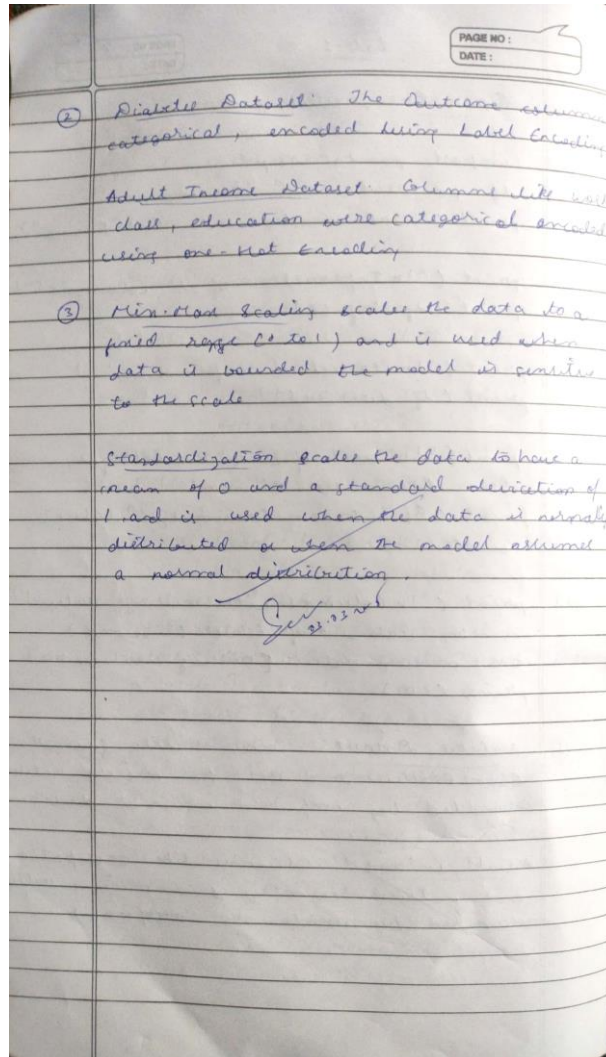 PAGE NO :
DATE :
② Diabetes Dataset: The Outcome column
categorical, encoded using Label Encoding
Adult Income Dataset: Columns like
class, education were categorical encoded
using one-Hot Encoding
③ Min-Max Scaling scales the data to a
fixed range (0 to 1) and is used when
data is bounded the model is sensitive
to the scale
Standardization scales the data to have a
mean of 0 and a standard deviation of
1 and is used when the data is normally
distributed or when the model assumes
a normal distribution.